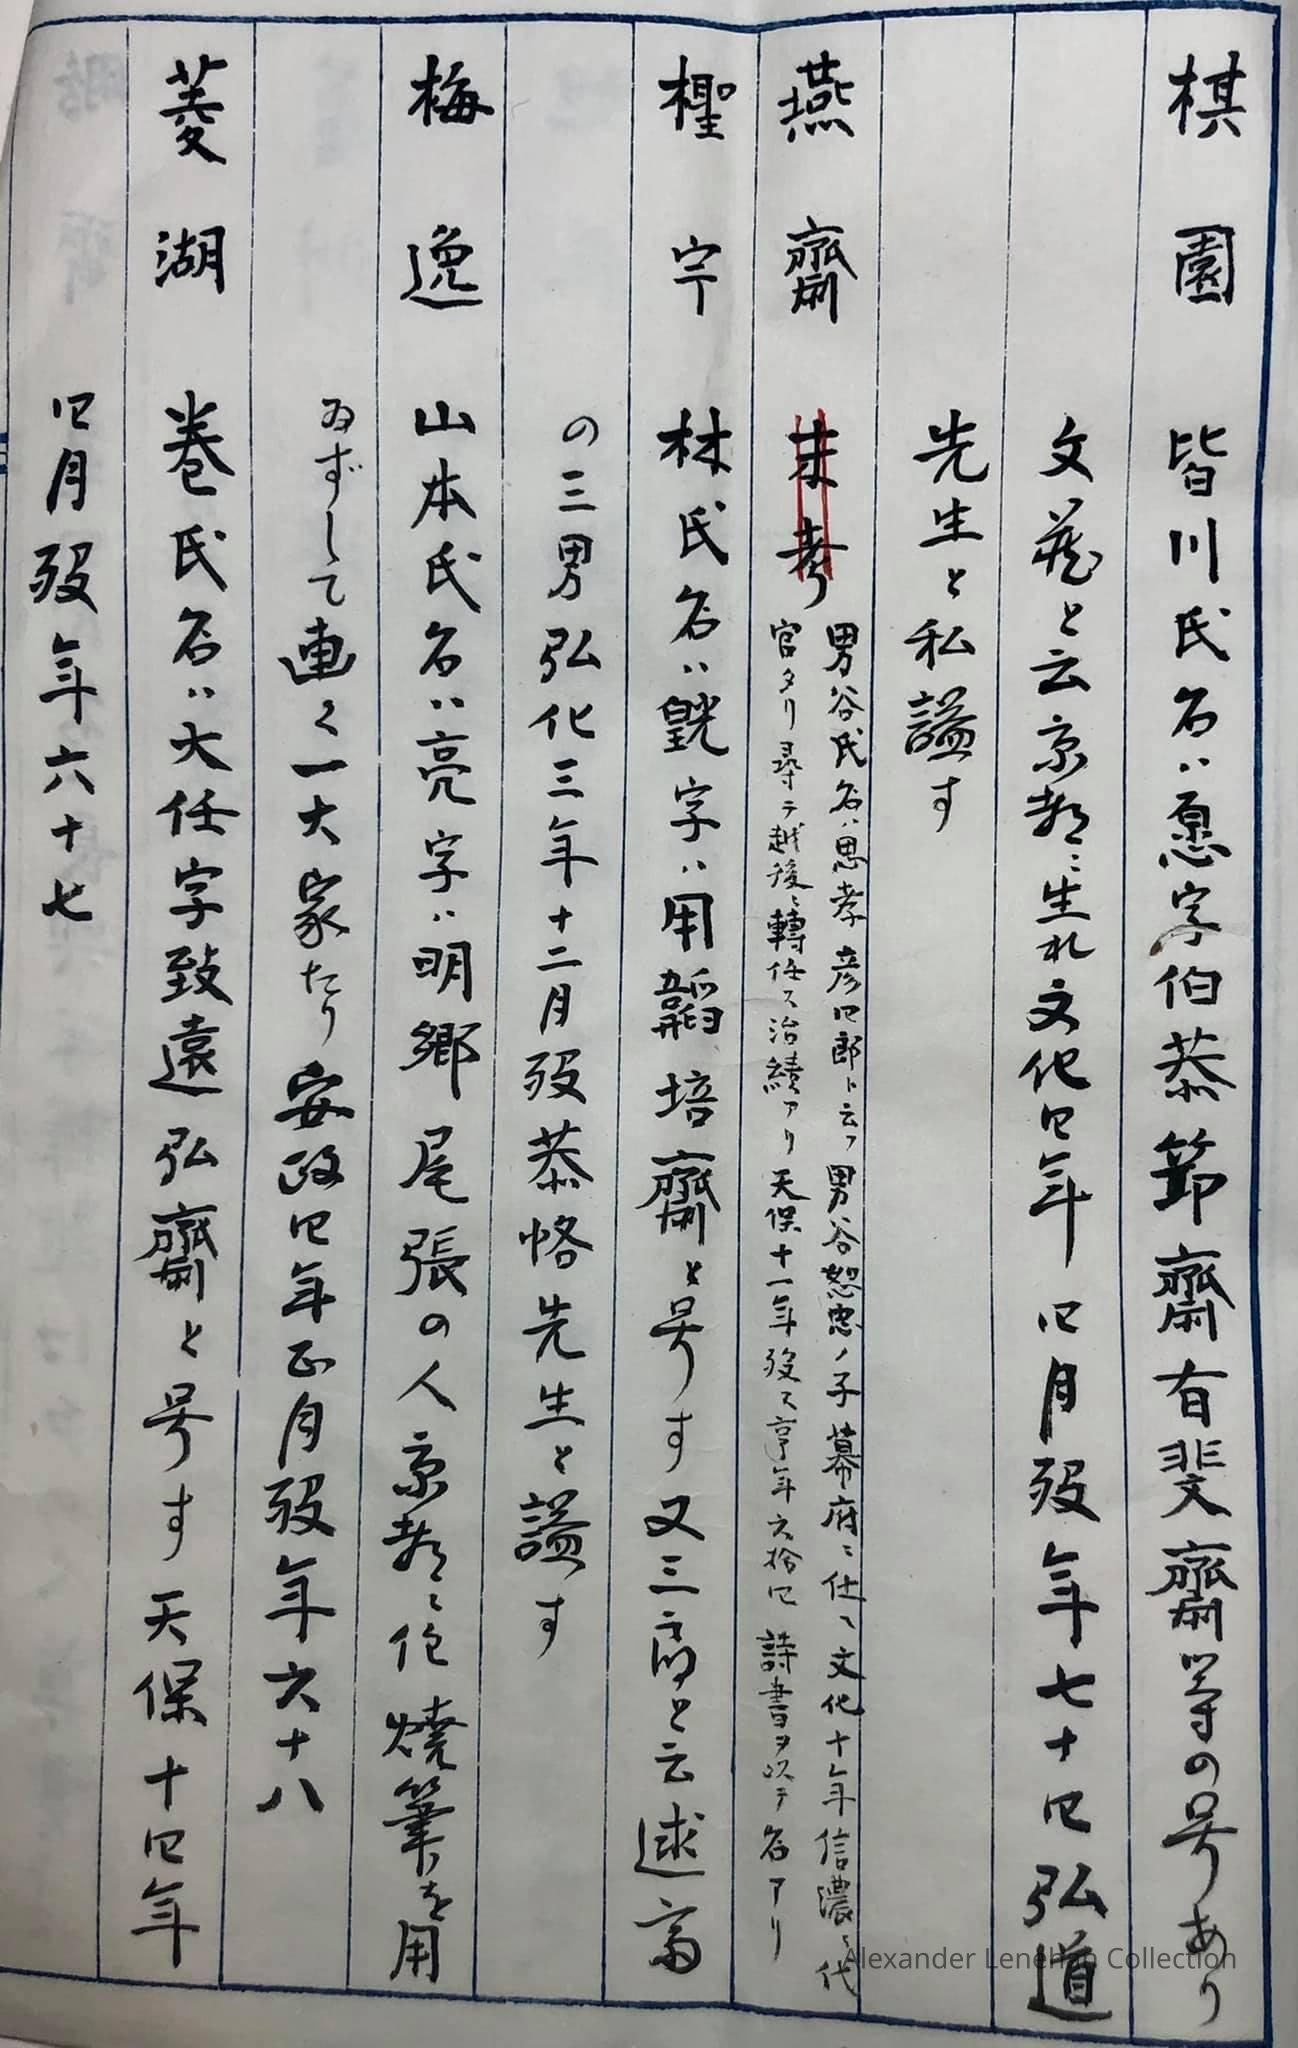 棋園 皆川氏名ハ愿字伯恭節齋有斐齋等の号あり
文藏と云京都ニ生れ文化四年四月歿年七十四弘道
先生と私謚す
燕齋 未考 男谷氏名ハ思孝彦四郎ト云フ男谷恕忠ノ子幕府ニ仕ヘ文化十年信濃ニ代
官タリ尋テ越後ニ轉任ス治績アリ天保十一年歿ス享年六拾四詩書ヲ以テ名アリ
檉宇 林氏名ハ皝字ハ用韜培齋と号す又三郎と云述齋
の三男弘化三年十二月歿恭恪先生と謚す
梅逸 山本氏名ハ亮字ハ明郷尾張の人京都ニ住燒筆を用
ゐずして画く一大家たり安政四年正月歿年六十八
菱湖 巻氏名ハ大任字致遠弘齋と号す天保十四年
四月歿年六十七
Alexander Lenehan Collection